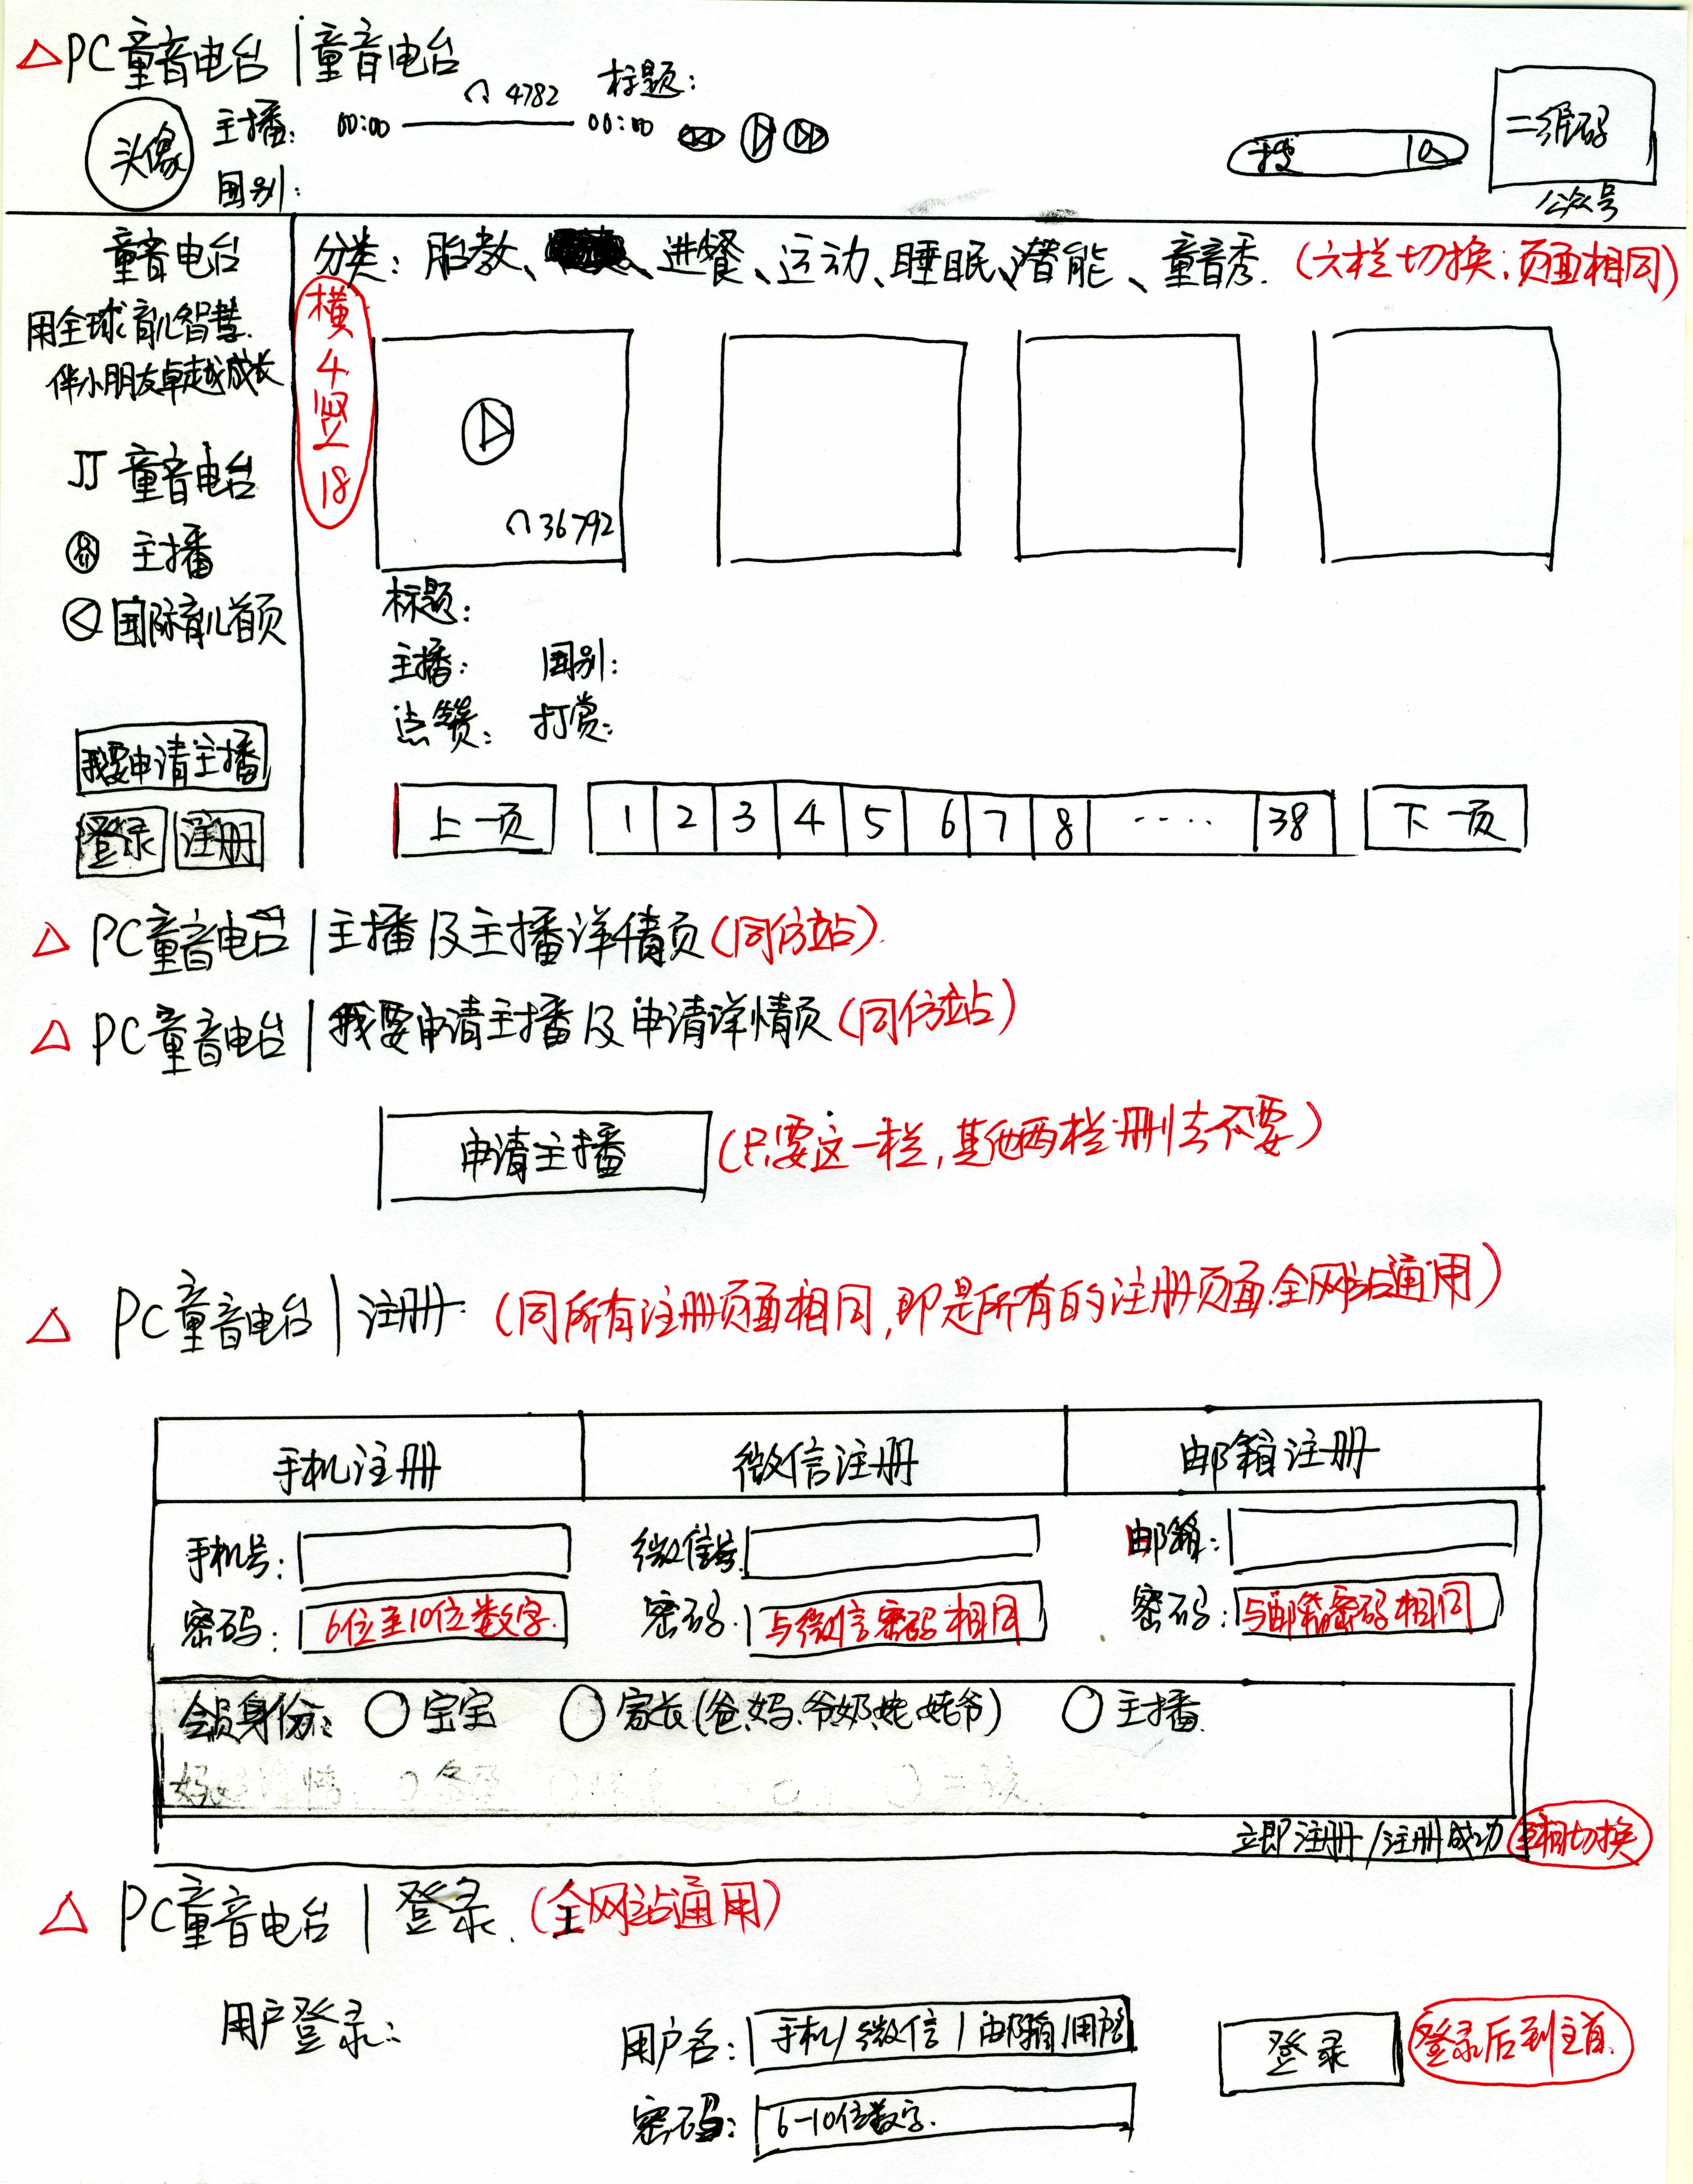 △PC童音电台|童音电台
头像
主播:
国别:
00:00
4782
00:00
标题:
搜
二维码
公众号
童音电台
用全球育儿智慧.
伴小朋友卓越成长
童音电台
主播
国际育儿首页
我要申请主播
登录 注册
分类: 胎教、进餐、运动、睡眠、潜能、童音秀. (六栏切换:页面相同)
横4竖18
36792
标题:
主播: 国别:
点赞: 打赏:
上一页 1 2 3 4 5 6 7 8 ····· 38 下一页
△ PC童音电台|主播及主播详情页(同仿站).
△ PC童音电台|我要申请主播及申请详情页(同仿站)
申请主播 (只要这一栏,其他两栏删去不要)
△ PC童音电台|注册 (同所有注册页面相同,即是所有的注册页面.全网站通用)
手机注册 微信注册 邮箱注册
手机号: 微信号 邮箱:
密码: 6位至10位数字. 密码. 与微信密码相同 密码: 与邮箱密码相同
会员身份: ○宝宝 ○家长(爸、妈、爷奶、姥、姥爷) ○主播.
立即注册/注册成功 互相切换
△ PC童音电台|登录. (全网站通用)
用户登录:
用户名: 手机/微信/邮箱/用户名
密码: 6-10位数字.
登录 登录后到主首.